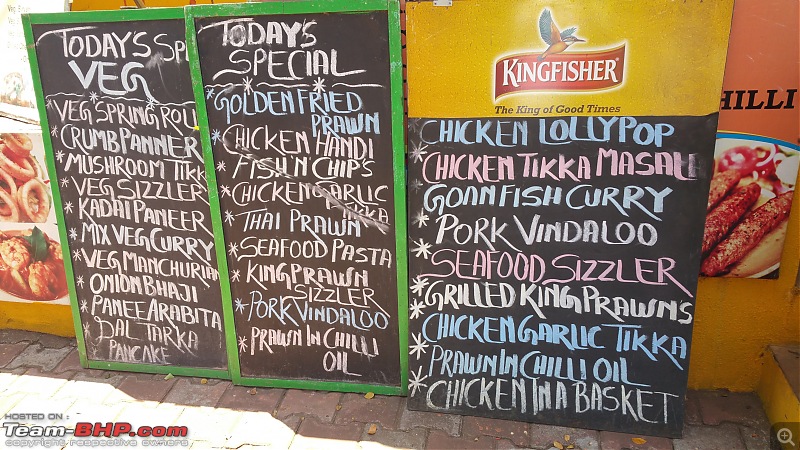 TODAY'S SPE
VEG
* VEG SPRING ROLL
* CRUMB PANNER
* MUSHROOM TIKK
* VEG SIZZLER
* KADAI PANEER
* MIX VEG CURRY
* VEG MANCHURIAN
* ONION BHAJI
* PANEE ARABITA
* DAL TARKA
PANCAKE
TODAY'S
SPECIAL
* GOLDEN FRIED
PRAWN
* CHICKEN HANDI
* FISH 'N' CHIP'S
* CHICKEN GARLIC
TIKKA
* THAI PRAWN
* SEAFOOD PASTA
* KING PRAWN
SIZZLER
* PORK VINDALOO
* PRAWN IN CHILLI
OIL
KINGFISHER
The King of Good Times
CHICKEN LOLLYPOP
* CHICKEN TIKKA MASALL
* GOAN FISH CURRY
* PORK VINDALOO
* SEAFOOD SIZZLER
* GRILLED KING PRAWN'S
* CHICKEN GARLIC TIKKA
* PRAWN IN CHILLI OIL
* CHICKEN IN A BASKET
HILLI
HOSTED ON
Team-BHP.com
copyright respective owner